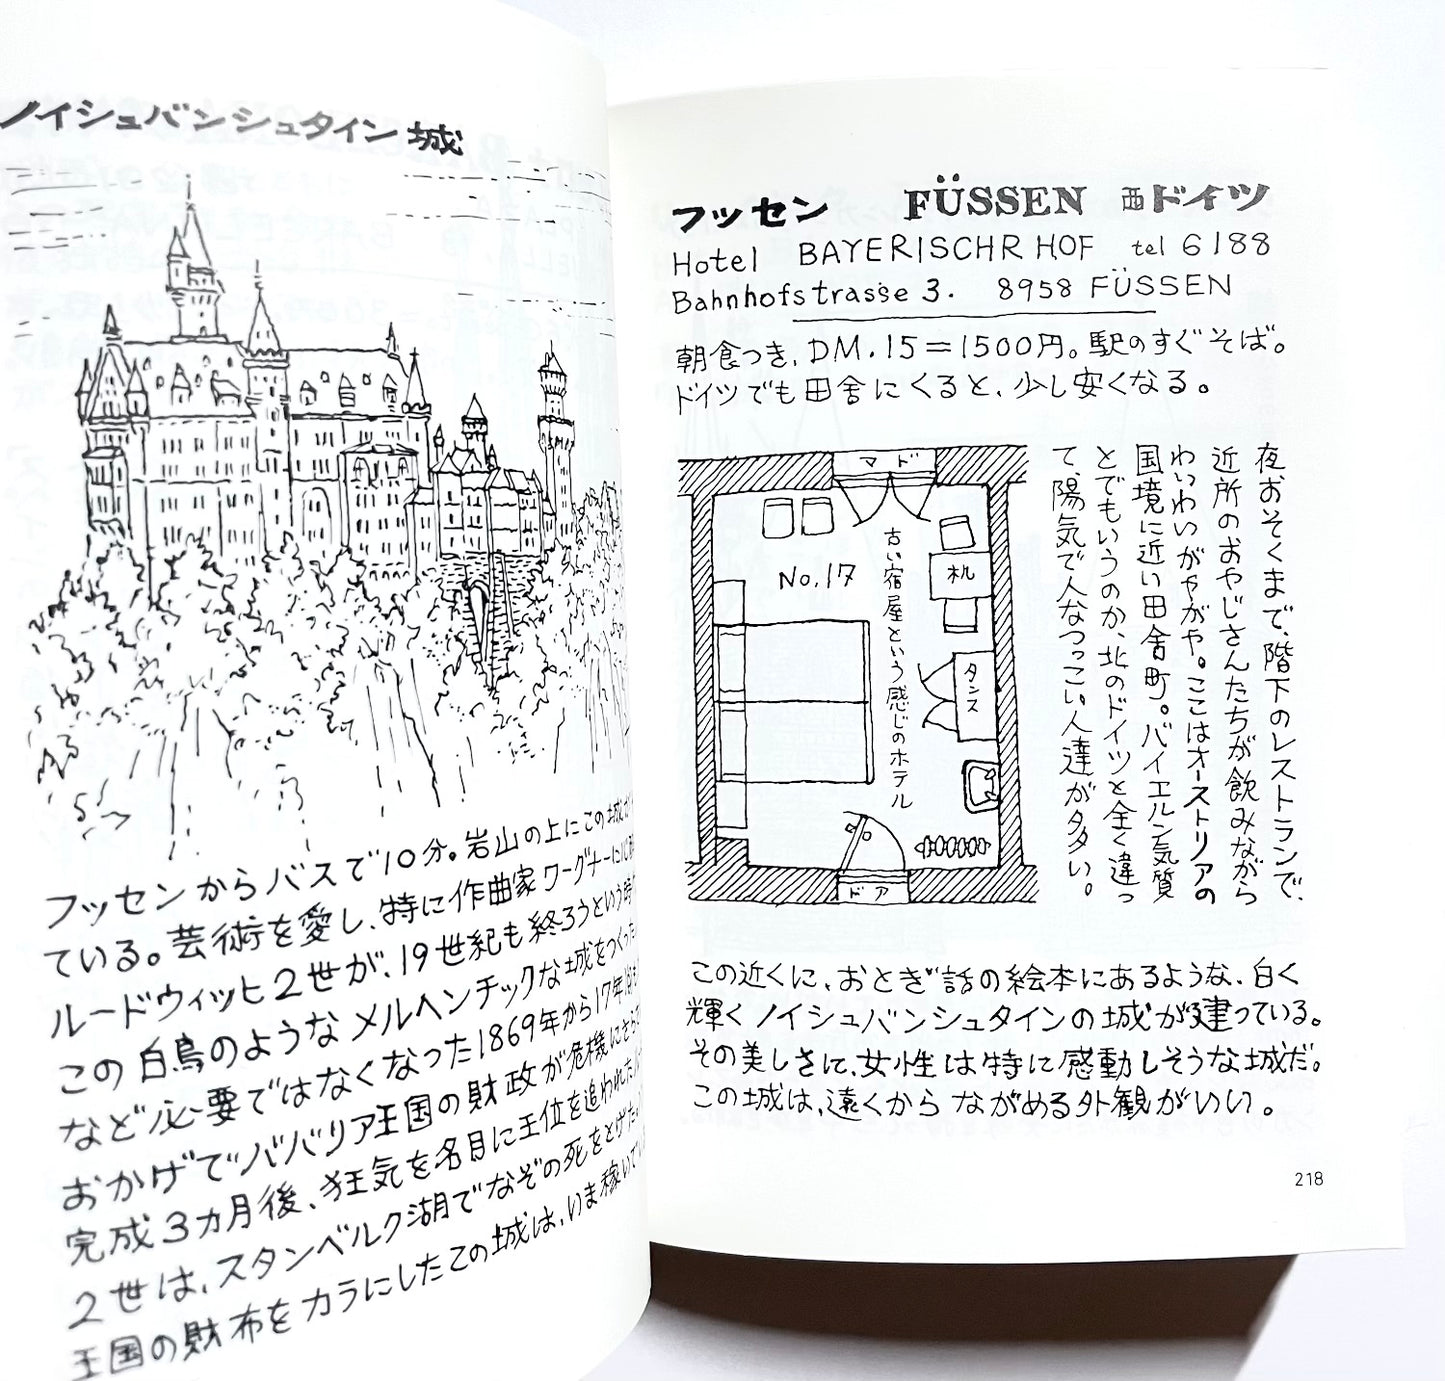 ノイシュバンシュタイン城
フッセンからバスで10分。岩山の上にこの城が
ている。芸術を愛し、特に作曲家ワーグナーに
ルードウィッヒ2世が、19世紀も終ろうという時
この白鳥のようなメルヘンチックな城をつくった
など必要ではなくなった1869年から17年
おかげでババリア王国の財政が危機にさら
完成3カ月後、狂気を名目に王位を追われた
2世は、スタンベルク湖でなぞの死をとげた。
王国の財布をカラにしたこの城は、いま稼いで
フッセン FÜSSEN 西ドイツ
Hotel BAYERISCHR HOF tel 6188
Bahnhofstrasse 3. 8958 FÜSSEN
朝食つき、DM.15=1500円。駅のすぐそば。
ドイツでも田舎にくると、少し安くなる。
マド
No.17
机
タンス
古い宿屋という感じのホテル
ドア
夜おそくまで、階下のレストランで、
近所のおやじさんたちが飲みながら
わいわいがやがや。ここはオーストリアの
国境に近い田舎町。バイエルン気質
とでもいうのか、北のドイツと全く違っ
て、陽気で人なつっこい人達が多い。
この近くに、おとぎ話の絵本にあるような、白く
輝くノイシュバンシュタインの城が建っている。
その美しさに、女性は特に感動しそうな城だ。
この城は、遠くからながめる外観がいい。
218